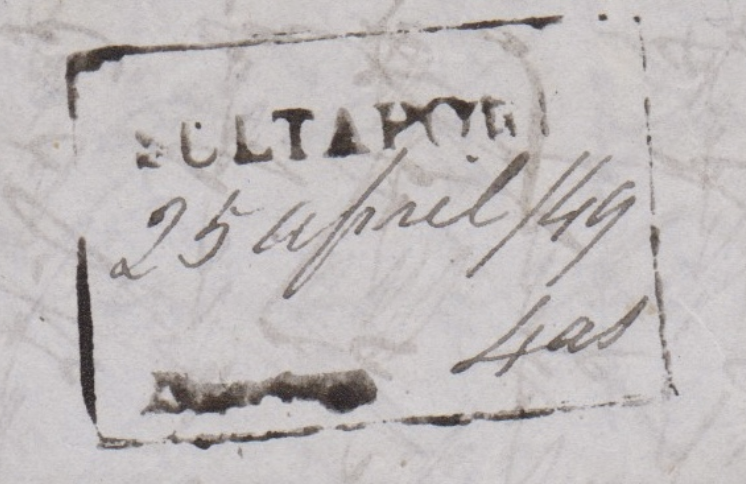 SULTAPOR
25 april /49
4as